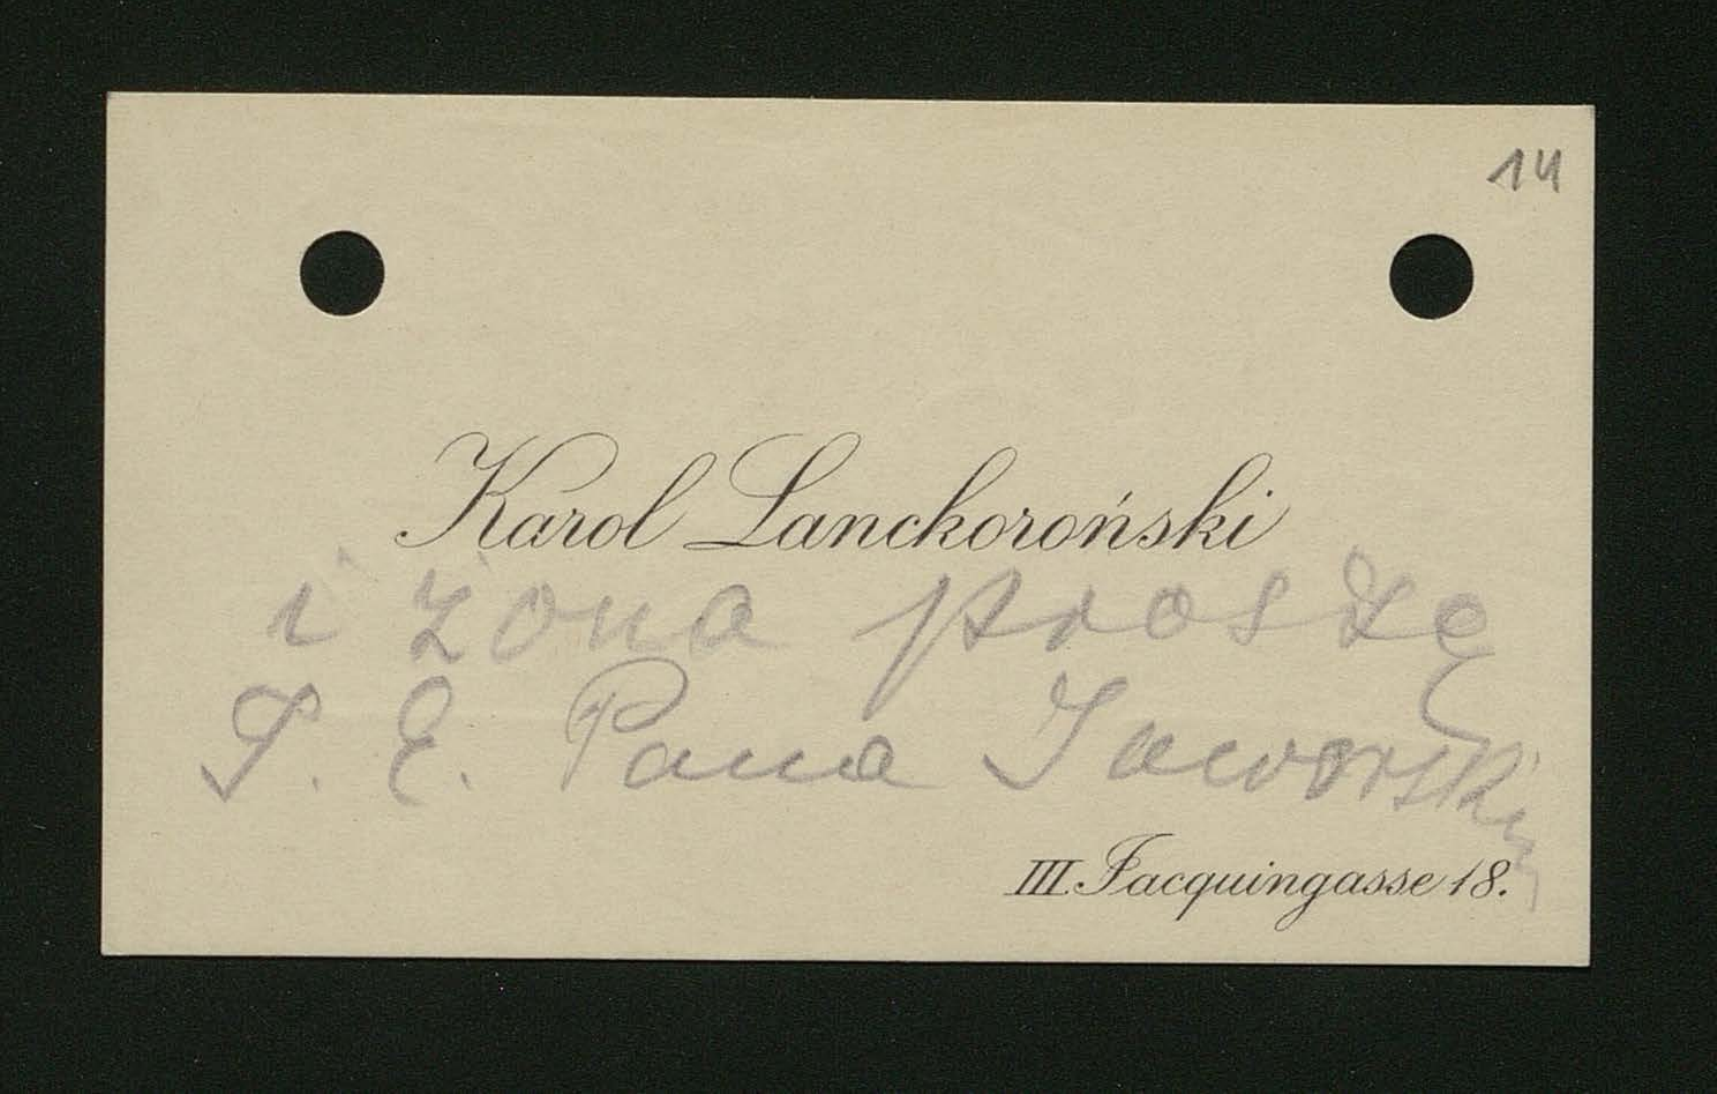 14
Karol Lanckoroński
i żona proszą
J. E. Pana Jaworski
III. Jacquingasse 18.